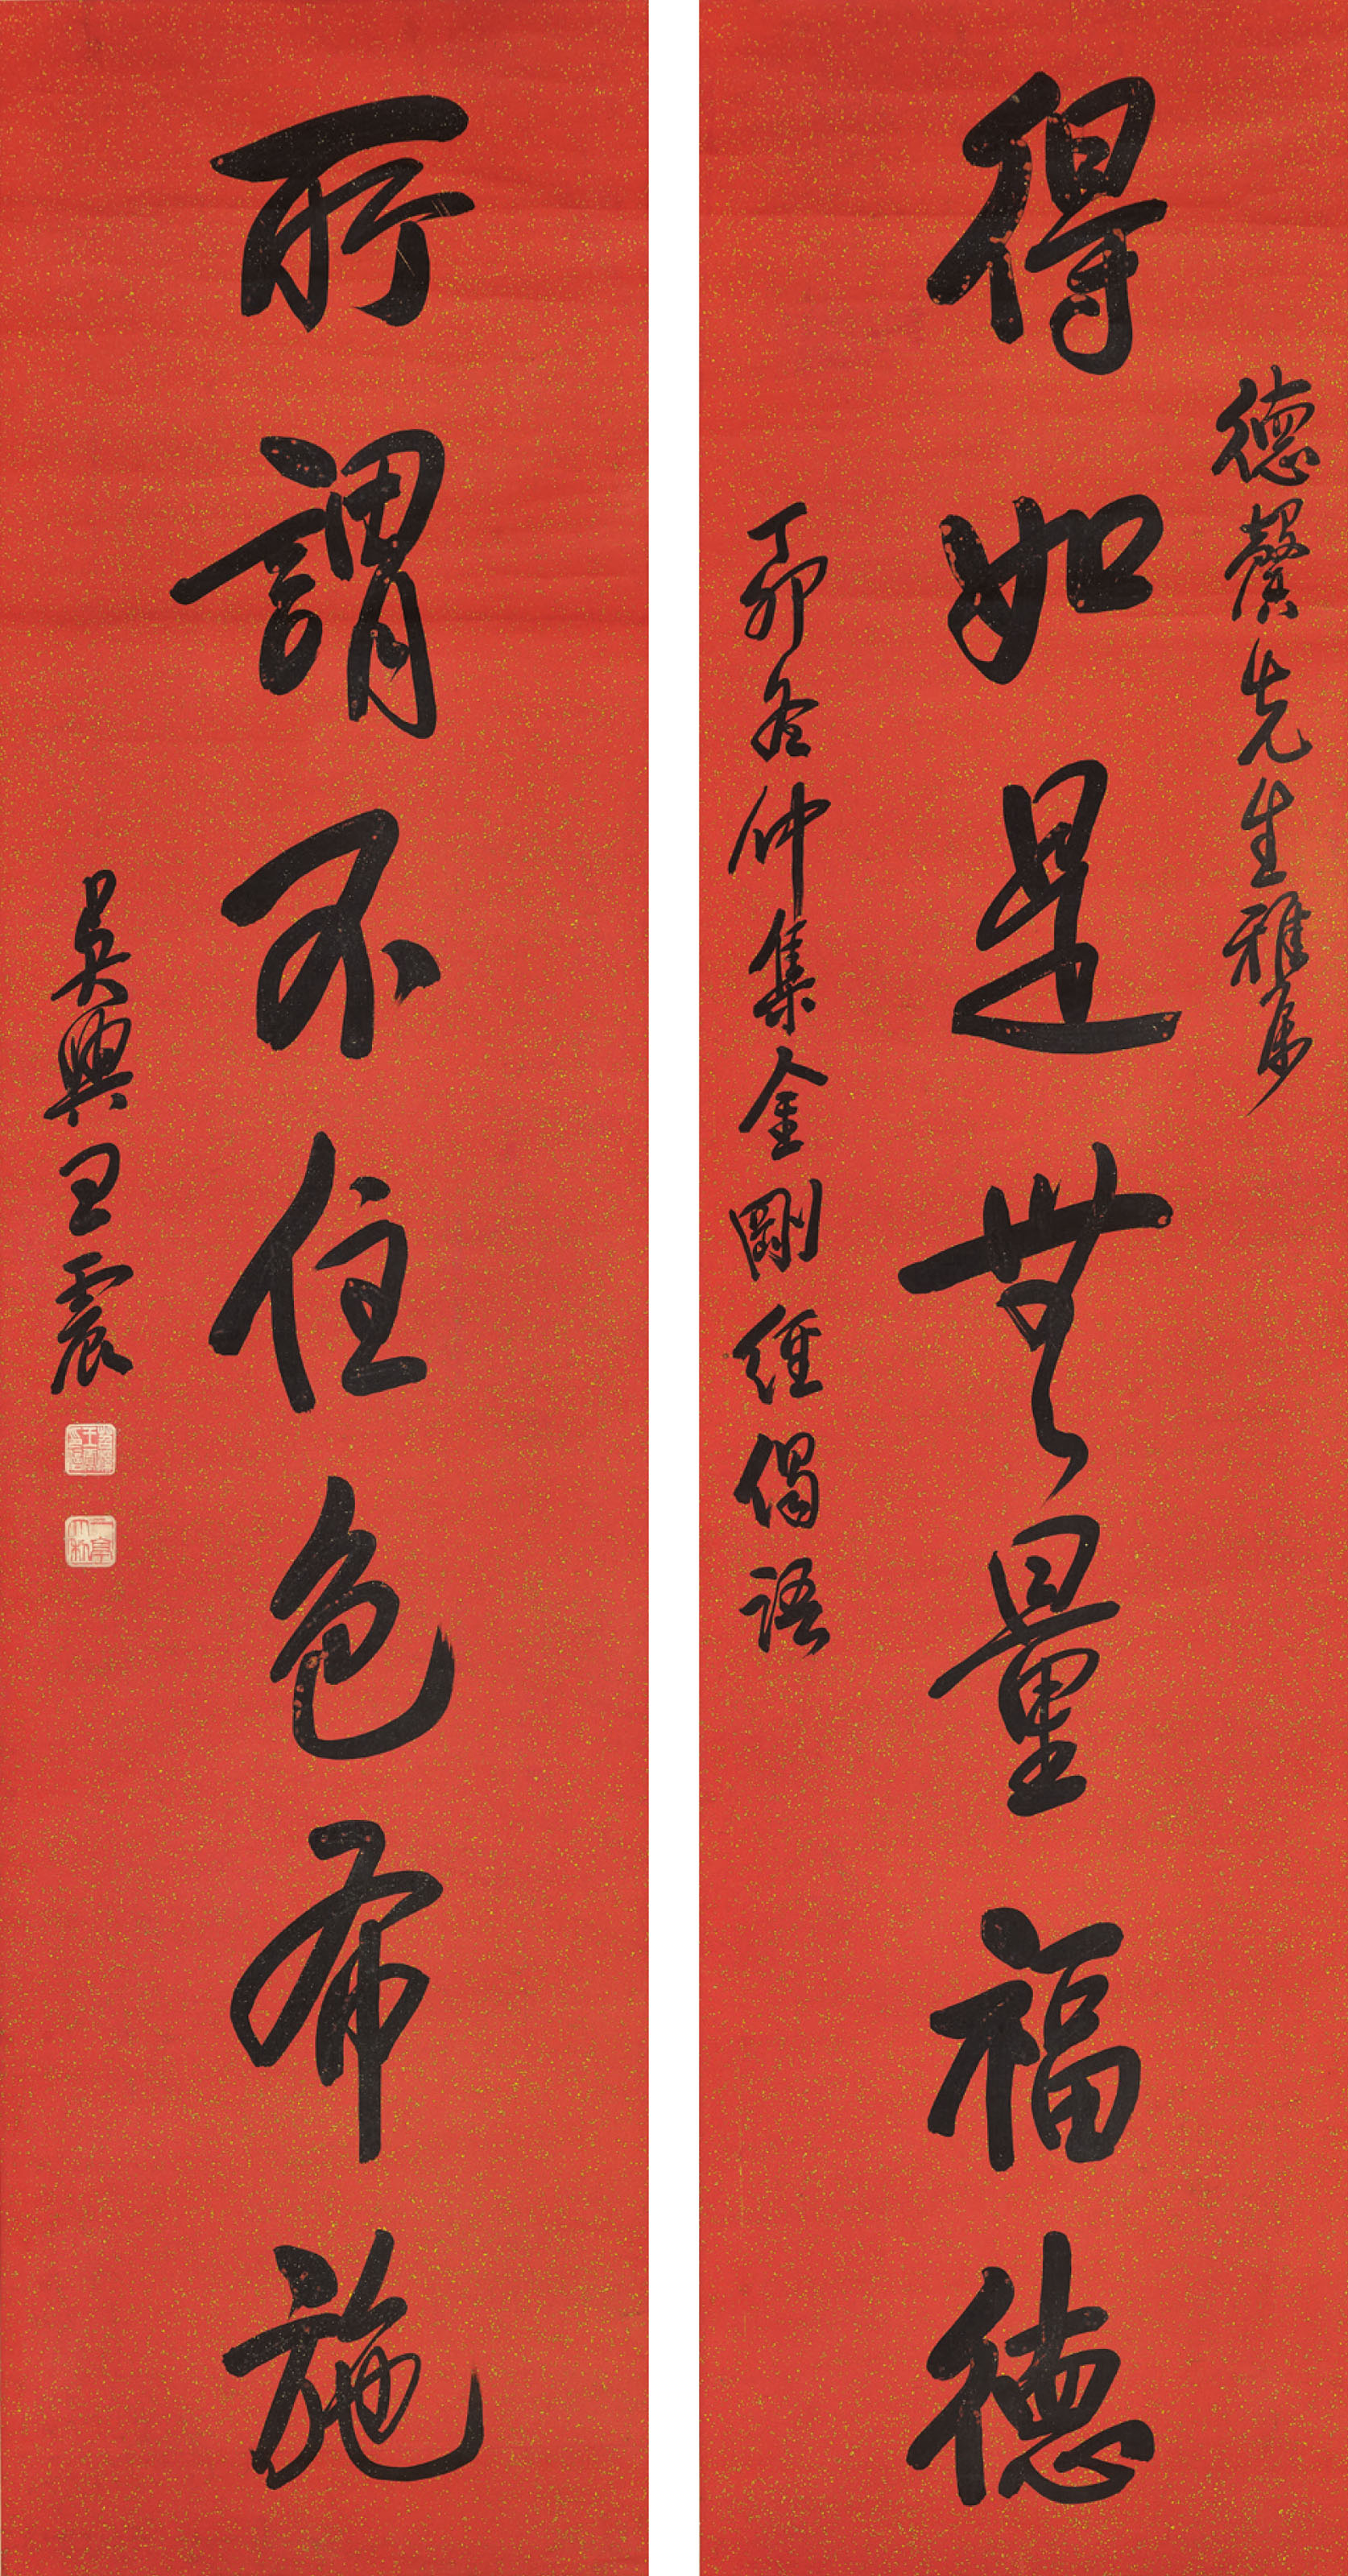 德馨先生雅屬
得如是無量福德
丁卯冬仲集金剛經偈語
所謂不住色布施
吳興王震